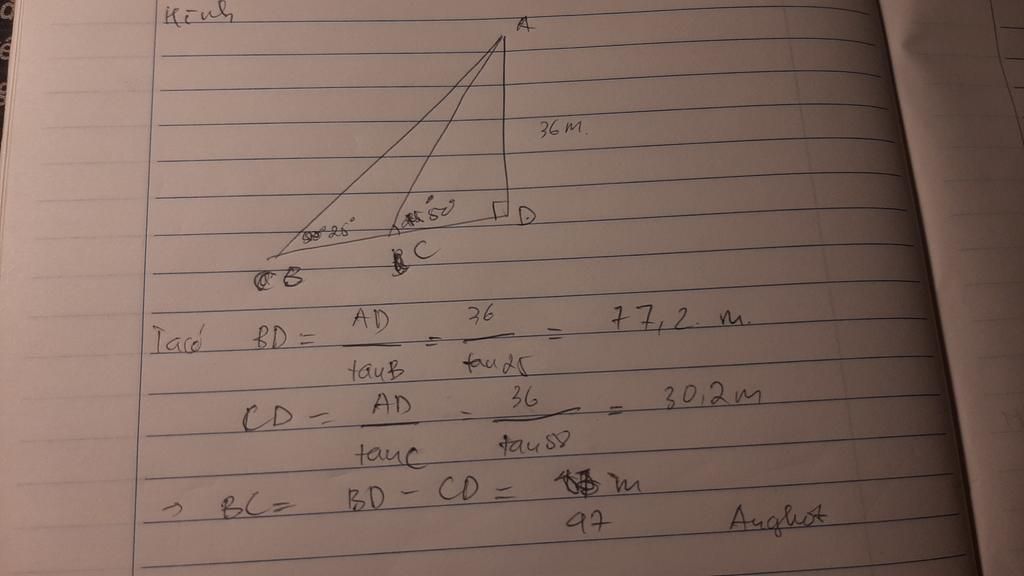 Hình
A
36 m.
25°
50°
D
B
C
Ta có BD = AD / tan B = 36 / tan 25 = 77,2 m.
CD = AD / tan C = 36 / tan 50 = 30,2 m
→ BC = BD - CD = 47 m